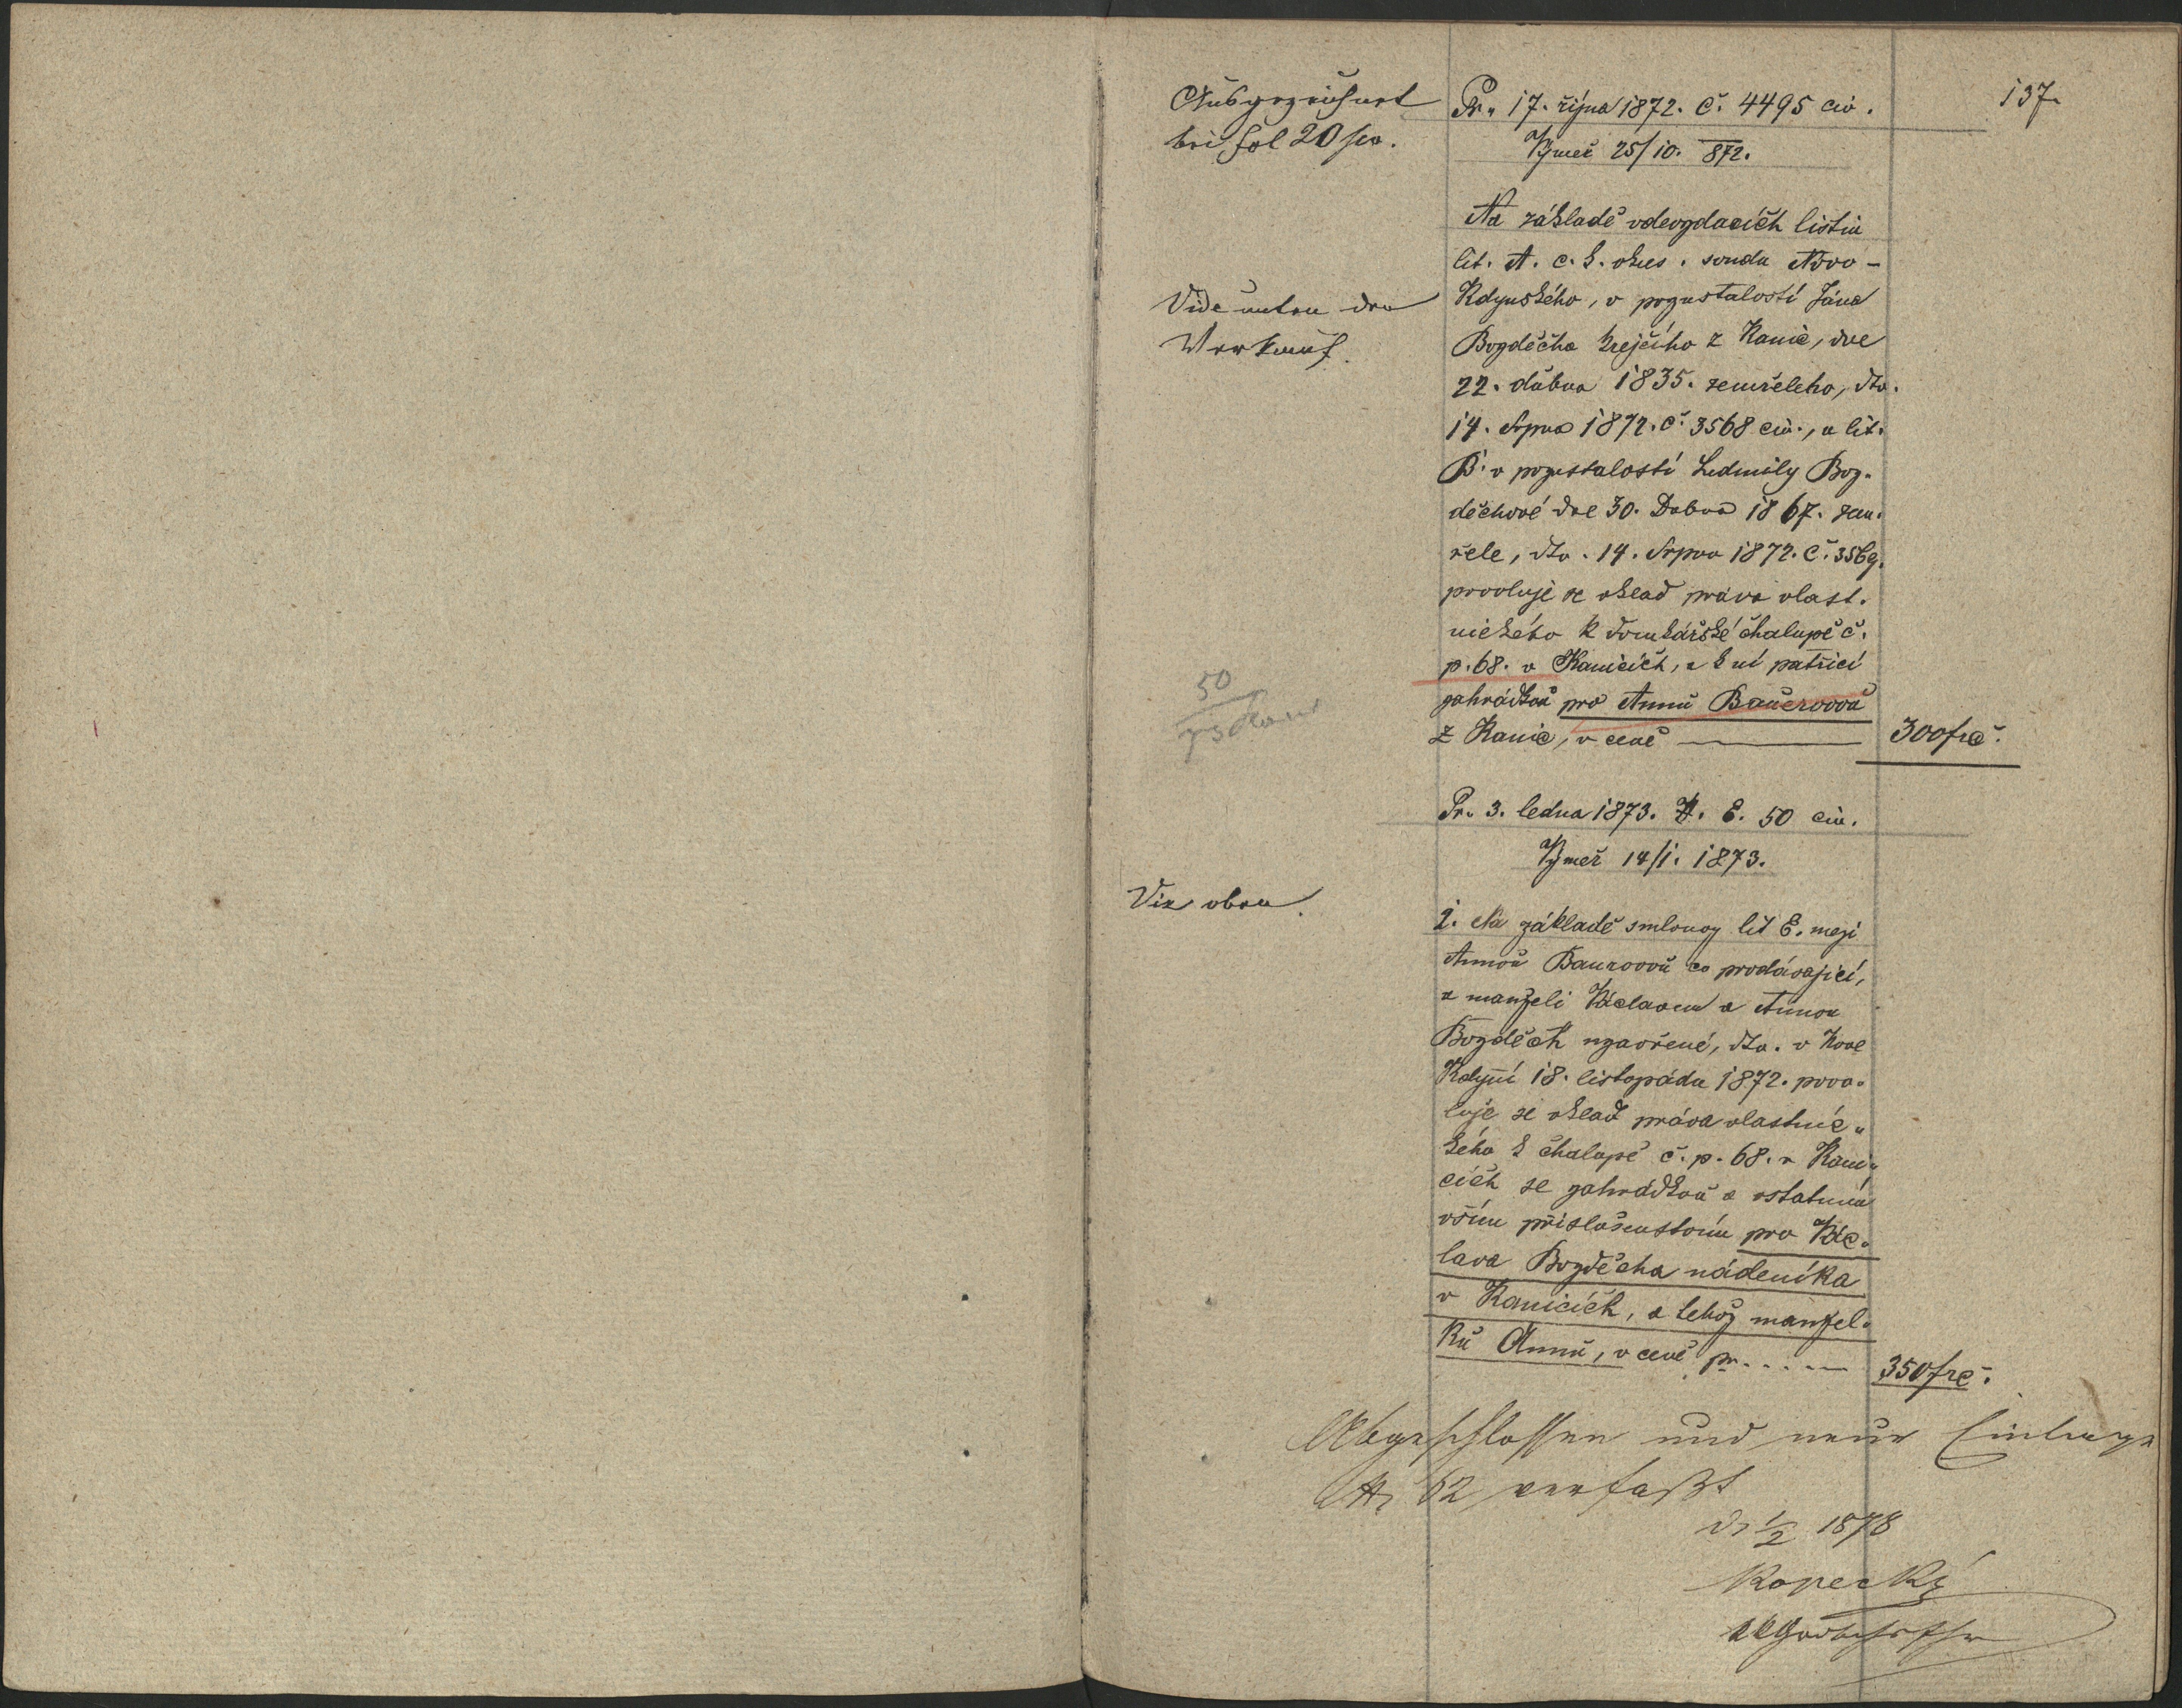 137.
Ausgezeichnet
bei fol 20 sev.
Pr. 17. října 1872. č. 4495 civ.
Výměr 25/10. 872.
Na základě odevzdacích listin
lit. A. c. k. okres. soudu Novo-
Kdynského, v pozustalosti Jána
Vide unten den
Verkauf.
Bozděcha krejčího z Kanic, dne
22. dubna 1835. zemřelého, dto.
14. Srpna 1872. č. 3568 civ., a lit.
B. v pozustalosti Ludmily Boz-
děchové dne 30. Dubna 1867. zem-
řele, dto. 14. Srpna 1872. č. 3569.
provoluje se vklad práva vlast-
nického k domkářské chalupě č.
p. 68. v Kanicích, a k ní patřící
50
73
zahrádkou pro Annu Bauerovou
z Kanic, v ceně 300 fr č.
Pr. 3. ledna 1873. N. E. 50 civ.
Výměr 14/1. 1873.
Viz oben.
1. Na základě smlouvy lit E. mezi
Annou Baurovou co prodávající,
a manželi Václavem a Annou
Bozděch uzavřené, dto. v Nové
Kdyni 18. listopadu 1872. povo-
luje se vklad práva vlastnic-
kého k chalupě č. p. 68. v Kani-
cích se zahrádkou a ostatním
vším příslušenstvím pro Vác-
lava Bozděcha nádeníka
v Kanicích, a tehož manžel-
ku Annu, v ceně pr. . . . 350 fr č.
Abgeschlossen und neue Einlage
N. 62 verfaßt
d. 1/2 1878
Kopecký